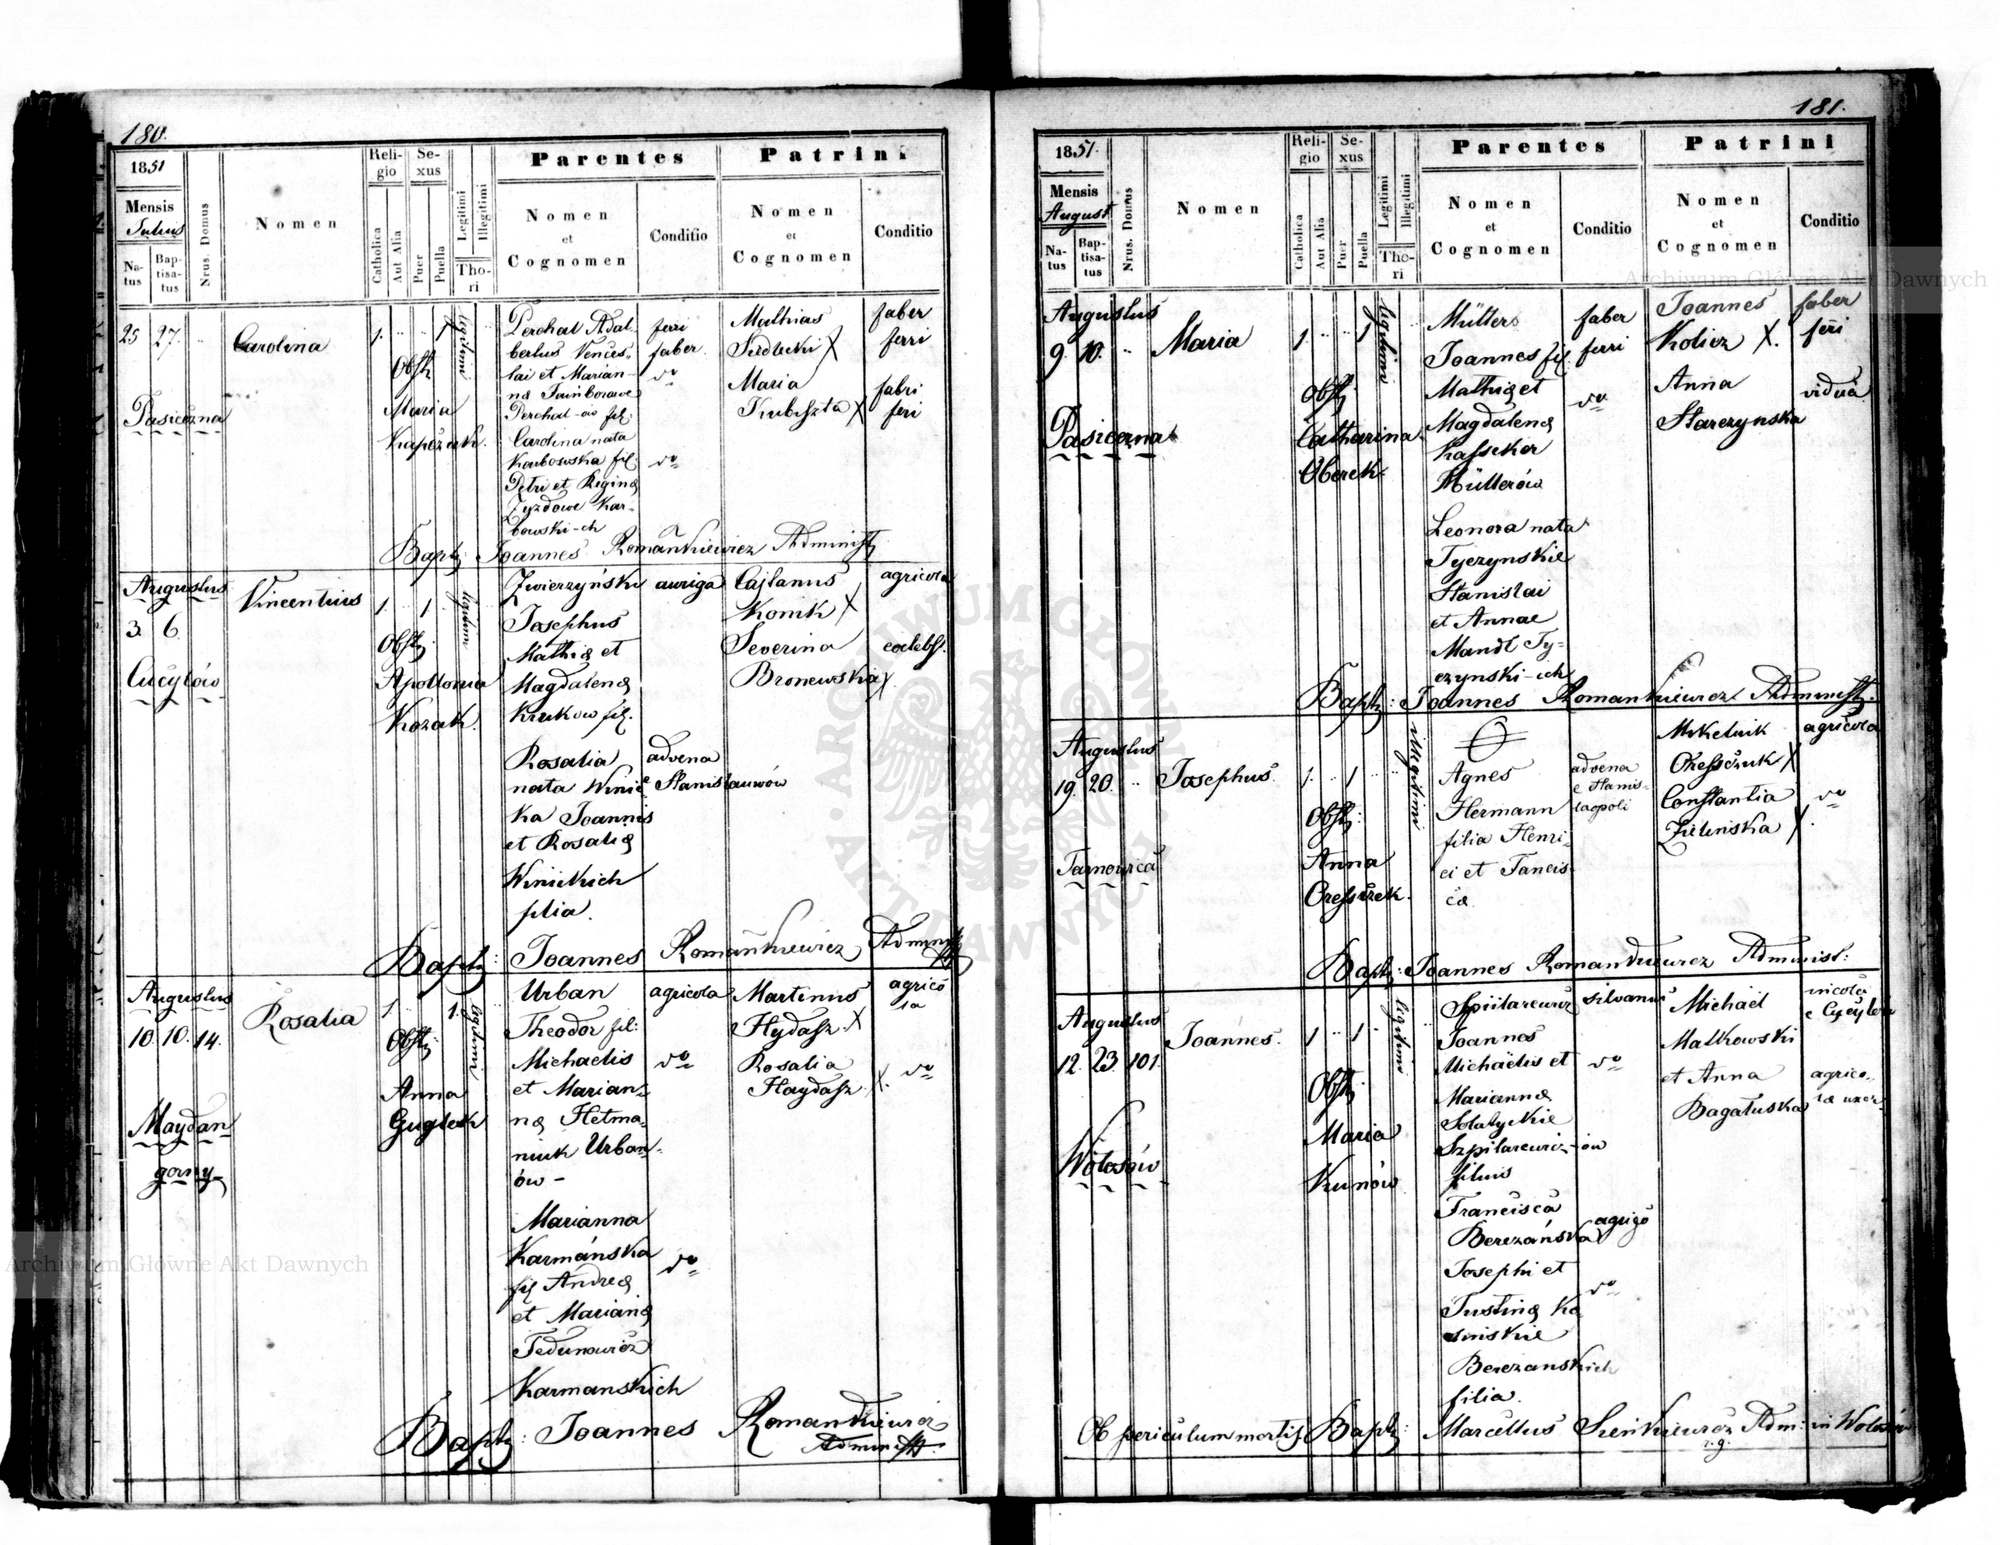 180.
1851
Mensis
Julius
Na-
tus
Bap-
tisa-
tus
Nrus. Domus
Nomen
Reli-
gio
Catholica
Aut Alia
Se-
xus
Puer
Puella
Legitimi
Illegitimi
Tho-
ri
Parentes
Nomen
et
Cognomen
Conditio
Patrini
Nomen
et
Cognomen
Conditio
25 27. Carolina 1. 1 legitimi
Pasieczna
Obst:
Maria
Perchal Adal-
bertus Vences-
lai et Marian-
na
Perchal-ów fil.
Carolina nata
Karbowska fil.
Petri et Regina
Kar-
bowski-ch
ferri
faber
do
do
Mathias
Siedlecki X
Maria
Kubiszta X
faber
ferri
fabri
feri
Bapt: Joannes Romankiewicz Administ:
Augustus
3. 6.
Cucyłów
Vincentius
1. 1 legitimi
Obst:
Apollonia
Kozak.
Zwierzyński
Josephus
Mathiæ et
Magdalenæ
Krukow fil.
Rosalia
nata Winic
ka Joannis
et Rosaliæ
Winickich
filia.
auriga
advena
Stanislauwów
Cajtanus
Konik X
Severina
Bronewska X
agricola
coelebs.
Bapt: Joannes Romankiewicz Administ
Augustus
10. 10. 14.
Maydan
gorny
Rosalia
1. 1. legitimi
Obst:
Anna
Guglek
Urban
Theodor fil:
Michaelis
et Marian-
næ Hetma-
niuk Urban-
ów-
Marianna
Karmańska
fil Andreæ
et Marianæ
Fedunowicz
Karmanskich
agricola
do
do
Martinus
Hydasz X
Rosalia
Haydasz X.
agrico
la
do
Bapt: Joannes Romankiewicz
Administ.
181.
1851.
Mensis
August
Na-
tus
Bap-
tisa-
tus
Nrus. Domus
Nomen
Reli-
gio
Catholica
Aut Alia
Se-
xus
Puer
Puella
Legitimi
Illegitimi
Tho-
ri
Parentes
Nomen
et
Cognomen
Conditio
Patrini
Nomen
et
Cognomen
Conditio
Augustus
9. 10.
Pasieczna
Maria
1. 1 legitimi
Obst:
Catharina
Oberek
Müller
Joannes fil.
Mathiæ et
Magdalenæ
Kasseker
Müllerów
Leonora nata
Tyczynskie
Stanislai
et Annae
Mandl Ty-
czynski-ich
faber
ferri
do
Joannes
Kolicz X.
Anna
Starczynska
faber
feri
vidua
Bapt: Joannes Romankiewicz Administ.
Augustus
19. 20.
Tarnowica
Josephus.
1. 1 illegitimi
Obst:
Anna
Oressczek.
Agnes
Hermann
filia Henri-
ci et
advena
e Stanis-
laopoli
Oressczuk X
Constantia
Zielińska X.
agricola
do
Bapt: Joannes Romankiewicz Administ:
Augustus
12. 23. 101.
Wołosów
Joannes.
1 1 legitimi
Obst:
Maria
Kunów
Joannes
Michaëlis et
Mariannæ
Solatyckie
Szpilarewicz-ów
filius
Francisca
Berezańska
Josephi et
Justinæ Ka
sinskie
Berezanskich
filia.
silvanus
do
do
Michaël
Malkowski
et Anna
Bagatuska
incola
e Cycylów
agrico-
læ uxor.
Ob periculum mortis Bapt: Marcellus Sienkiewicz Adm: in Wołosów
Archiwum Główne Akt Dawnych
Archiwum Główne Akt Dawnych
ARCHIWUM GŁÓWNE · AKT DAWNYCH ·